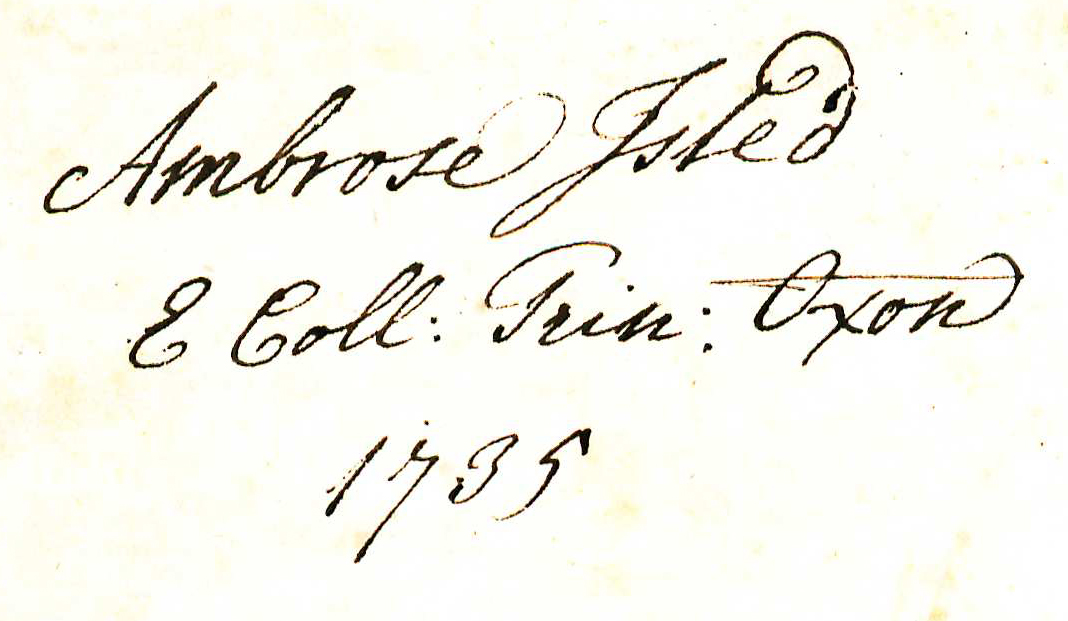 Ambrose Isted
E Coll: Trin: Oxon
1735